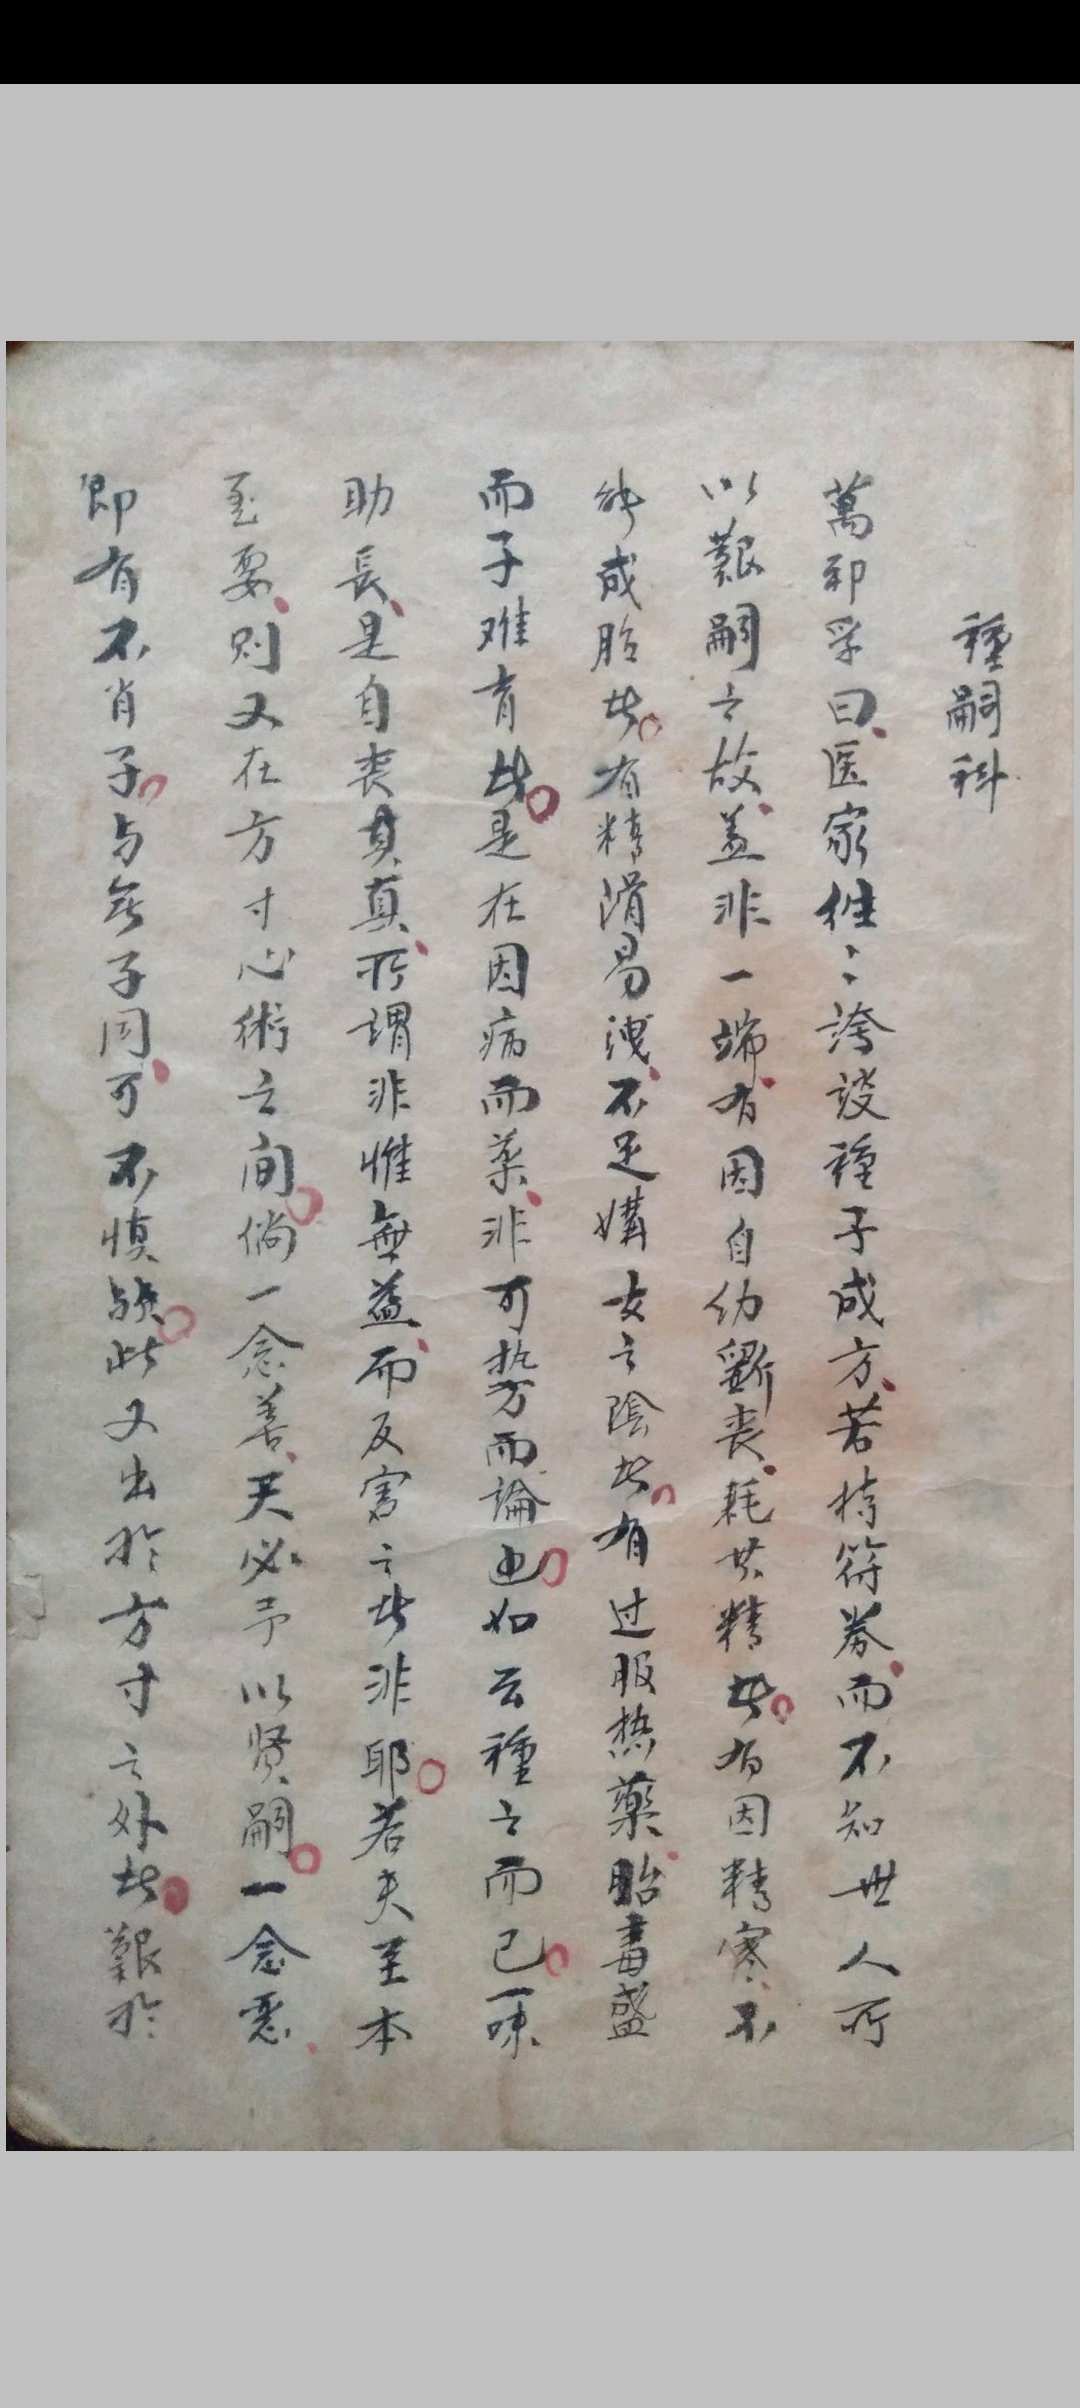 種嗣科
萬邦孚曰医家往々誇談種子成方若持符券而不知世人所
以艱嗣之故盖非一端有因自幼斵喪耗其精者有因精寒不
能成胎者有精滑易洩不足媾女之陰者有过服热藥胎毒盛
而子难育者是在因病而药非可執方而論也如云種之而已一味
助長是自丧其真所謂非惟無益而反害之者非耶若夫至本
至要则又在方寸心術之间倘一念善天必予以贤嗣一念恶
即有不肖子与无子同可不慎欤此又出於方寸之外者艱於